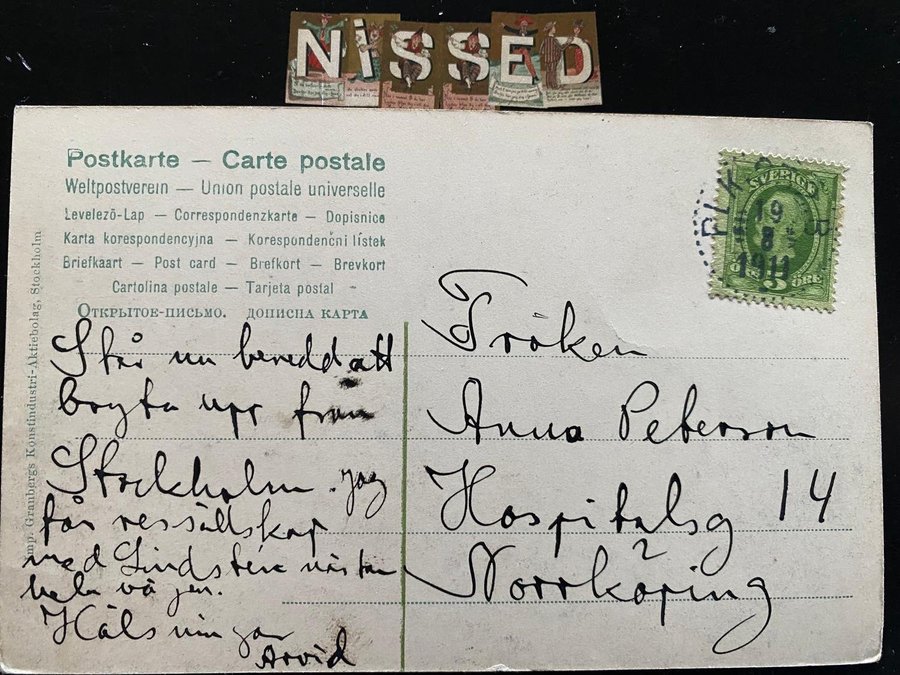 NiSSED
Postkarte — Carte postale
Weltpostverein — Union postale universelle
Levelezō-Lap — Correspondenzkarte — Dopisnice
Karta korespondencyjna — Korespondenčni lístek
Briefkaart — Post card — Brefkort — Brevkort
Cartolina postale — Tarjeta postal
Открытое-письмо. дописна карта
Granbergs Konstindustri-Aktiebolag, Stockholm
Står nu beredd att
bryta upp från
Stockholm. Jag
får ressällskap
med Lindstén nästan
hela vägen.
Hälsningar
Arvid
SVERIGE
PLK
19
8
1911
5
ÖRE
Fröken
Anna Peterson
Hospitalsg 14
Norrköping